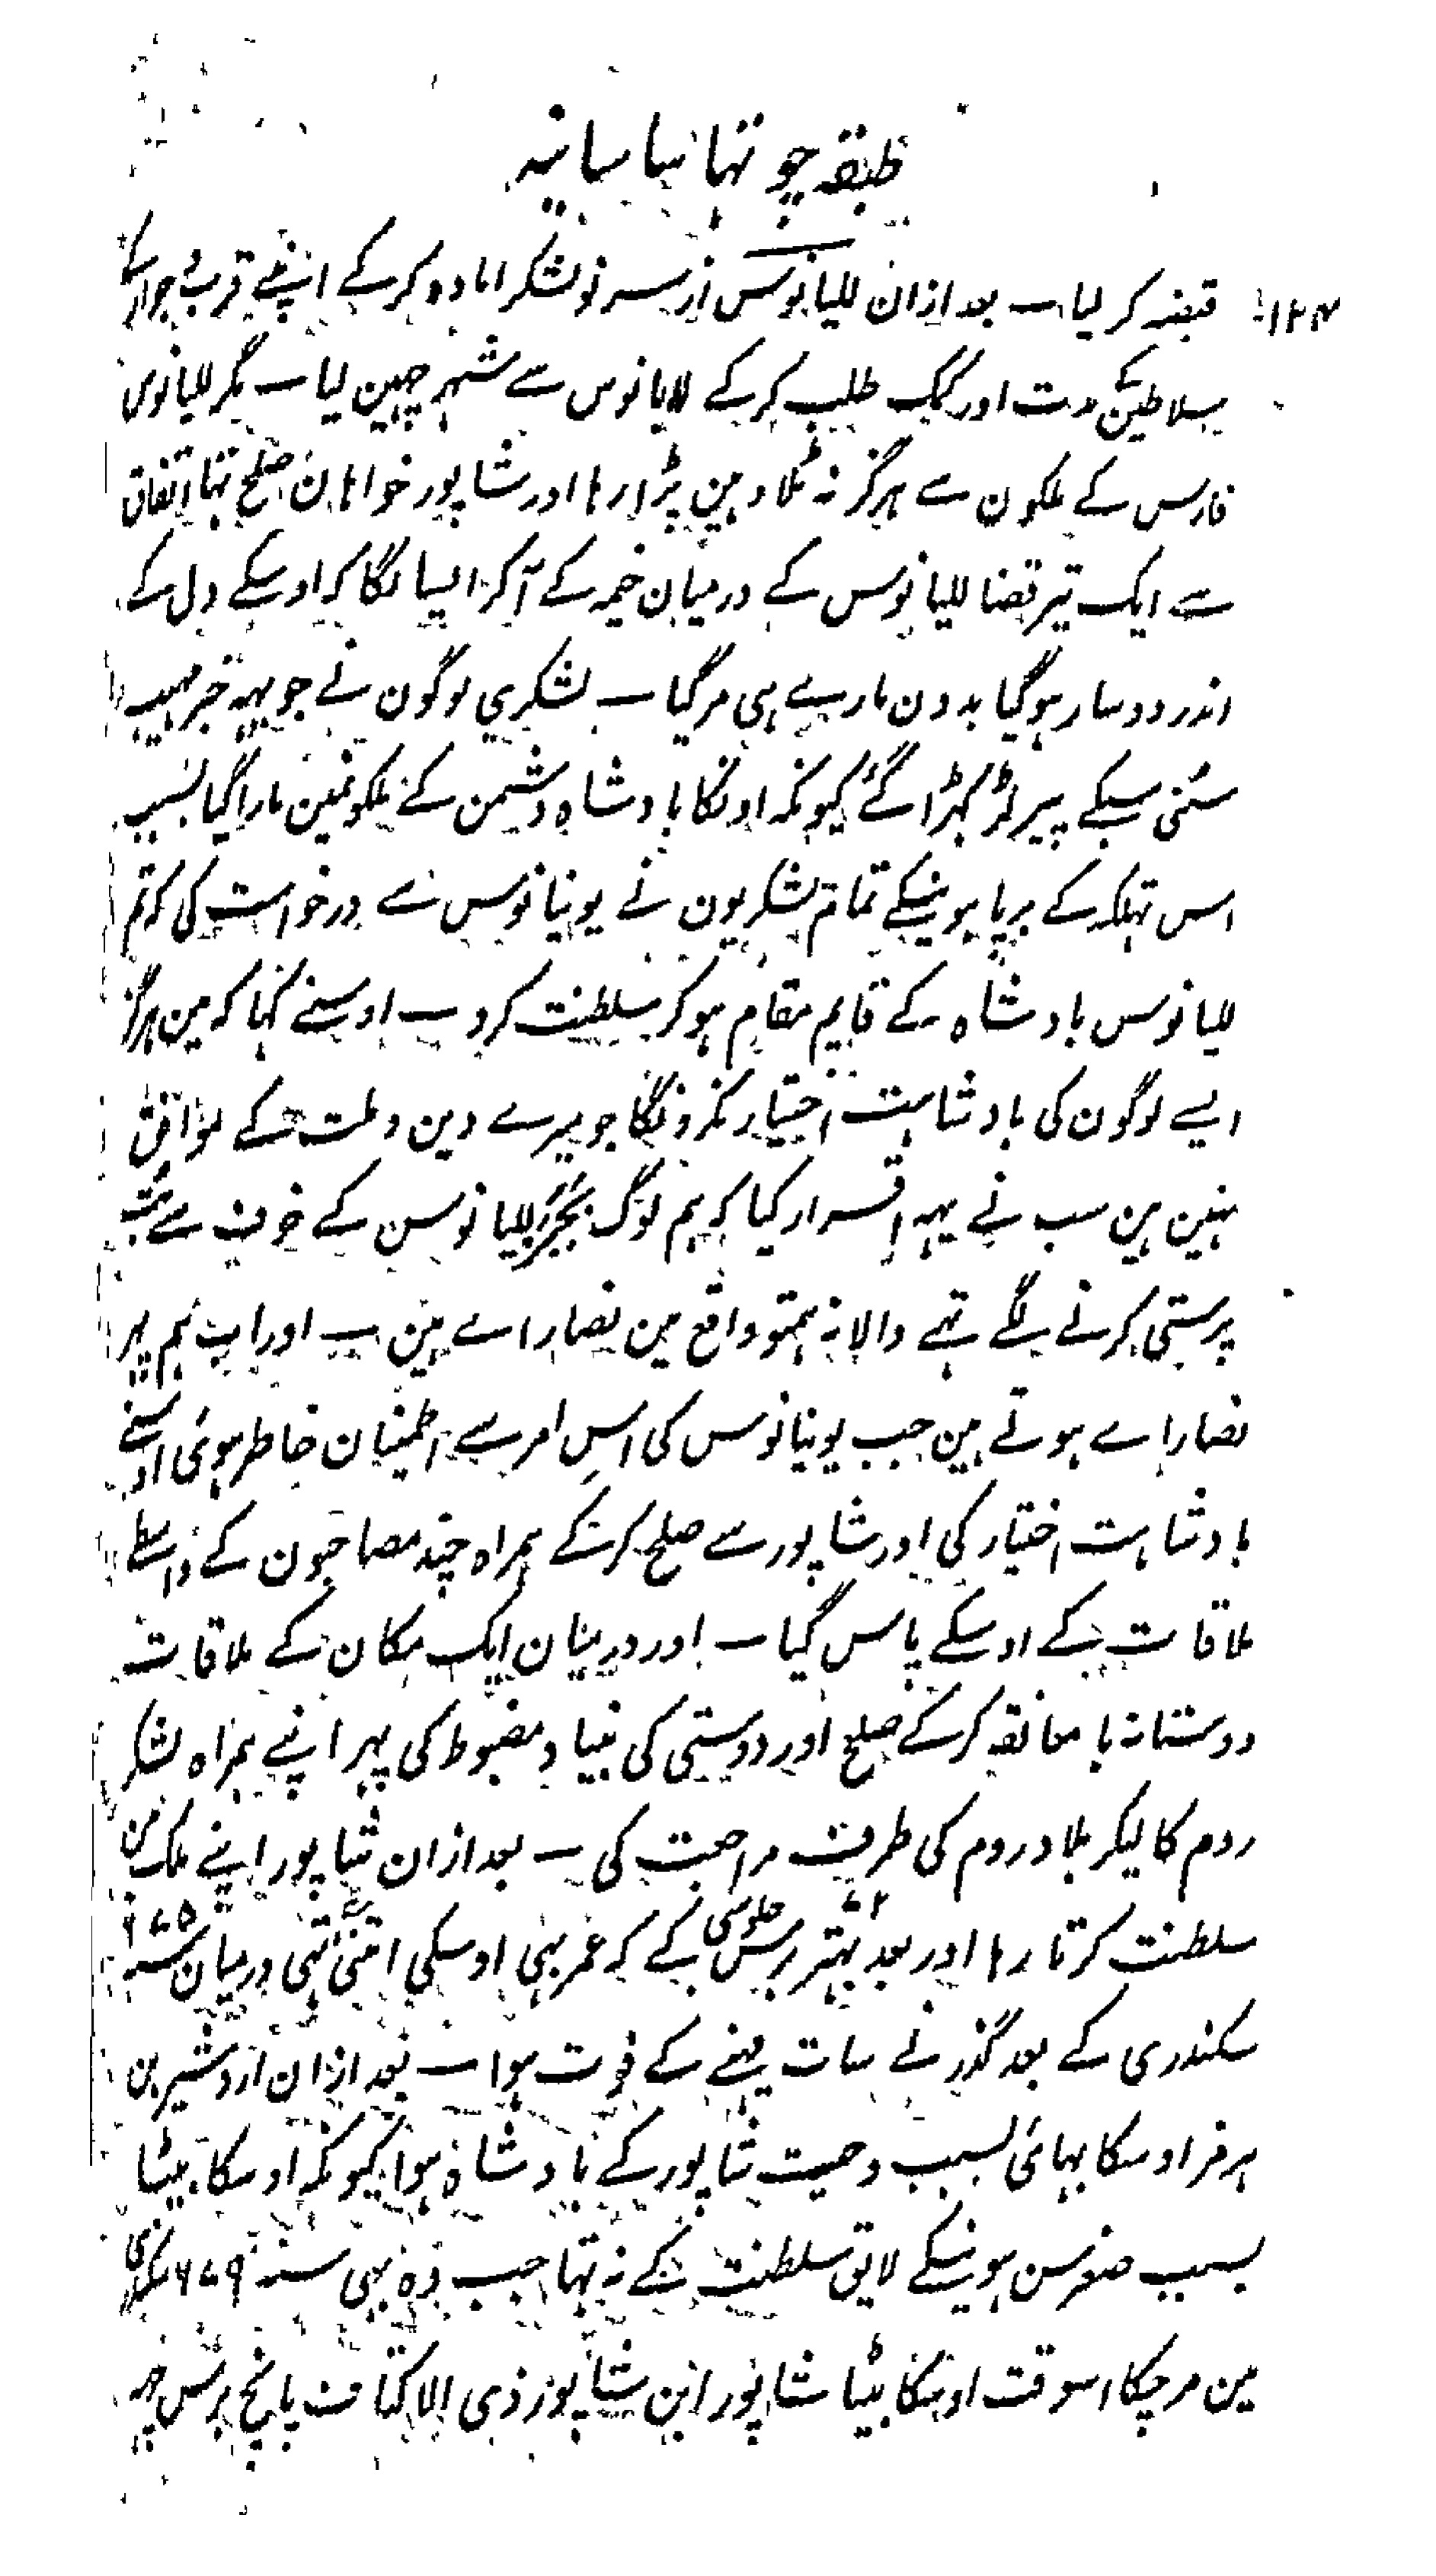 طبقہ چوتھا ساسانیہ
۱۲۴
قبضہ کر لیا ۔ بعد ازان للیانوس ازسرنو لشکر امادہ کر کے اپنے قرب جوار کے
سلاطین کی مدت اور کمک طلب کر کے للیانوس سے شہر چہین لیا ۔ مگر للیانوس
فارس کے ملکون سے ہرگز نہ ٹلا وہین پڑا رہا اور شاپور خواہان صلح تہا اتفاق
سے ایک تیر قضا للیانوس کے درمیان خیمہ کے آ کر ایسا لگا کہ اوسکے دل کے
اندر دوسار ہوگیا بدون مارے ہی مر گیا ۔ لشکری لوگون نے جو یہہ خبر مہیب
سنی سبکے پیر لڑکہڑا گئے کیونکہ اونکا بادشاہ دشمن کے ملکونمین مارا گیا بسبب
اس تہلکہ کے برپا ہونیکے تمام لشکریون نے یونیانوس سے درخواست کی کہ تم
للیانوس بادشاہ کے قایم مقام ہو کر سلطنت کرو ۔ اوسنے کہا کہ مین ہرگز
ایسے لوگون کی بادشاہت اختیار نکرونگا جو میرے دین و ملت کے موافق
نہین ہین سب نے یہہ اقرار کیا کہ ہم لوگ بجبر للیانوس کے خوف سے بت
پرستی کرنے لگے تہے والا نہ ہمتو واقع مین نصارا ے ہین ۔ اور اب ہم پہر
نصارا ے ہوتے ہین جب یونیانوس کی اس امر سے اطمینان خاطر ہوئی اوسنے
بادشاہت اختیار کی اور شاپور سے صلح کر کے ہمراہ چند مصاحبون کے واسطے
ملاقات کے اوسکے پاس گیا ۔ اور درمیان ایک مکان کے ملاقات
دوستانہ با معانقہ کر کے صلح اور دوستی کی بنیاد مضبوط کی پہر اپنے ہمراہ لشکر
روم کا لیکر بلاد روم کی طرف مراجعت کی ۔ بعد ازان شاپور اپنے ملک مین
سلطنت کرتا رہا اور بعد بہتر ۷۲ برس جلوسی کے کہ عمر بہی اوسکی اتنی ہی تہی درمیان سنہ ۶۷۵
سکندری کے بعد گذرنے سات مہینے کے فوت ہوا ۔ بعد ازان اردشیر بن
ہرمز اوسکا بہائی بسبب وصیت شاپور کے بادشاہ ہوا کیونکہ اوسکا بیٹا
بسبب صغر سن ہونیکے لایق سلطنت کے نہ تہا جب وہ بہی سنہ ۶۷۹ سکندری
مین مر چکا اسوقت اوسکا بیٹا شاپور ابن شاپور ذی الاکتاف پانچ برس چہ